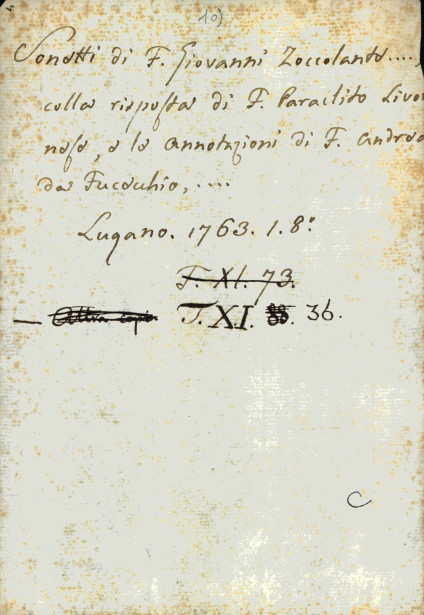 10)
Sonetti di F. Giovanni Zoccolante....,
colla risposta di F. Paraclito Livor
nese, e le annotazioni di F. Andrea
da Fucecchio, ....
Lugano. 1763. 1. 8º
T. XI. 73.
— Altra copia T. XI. 36.
C